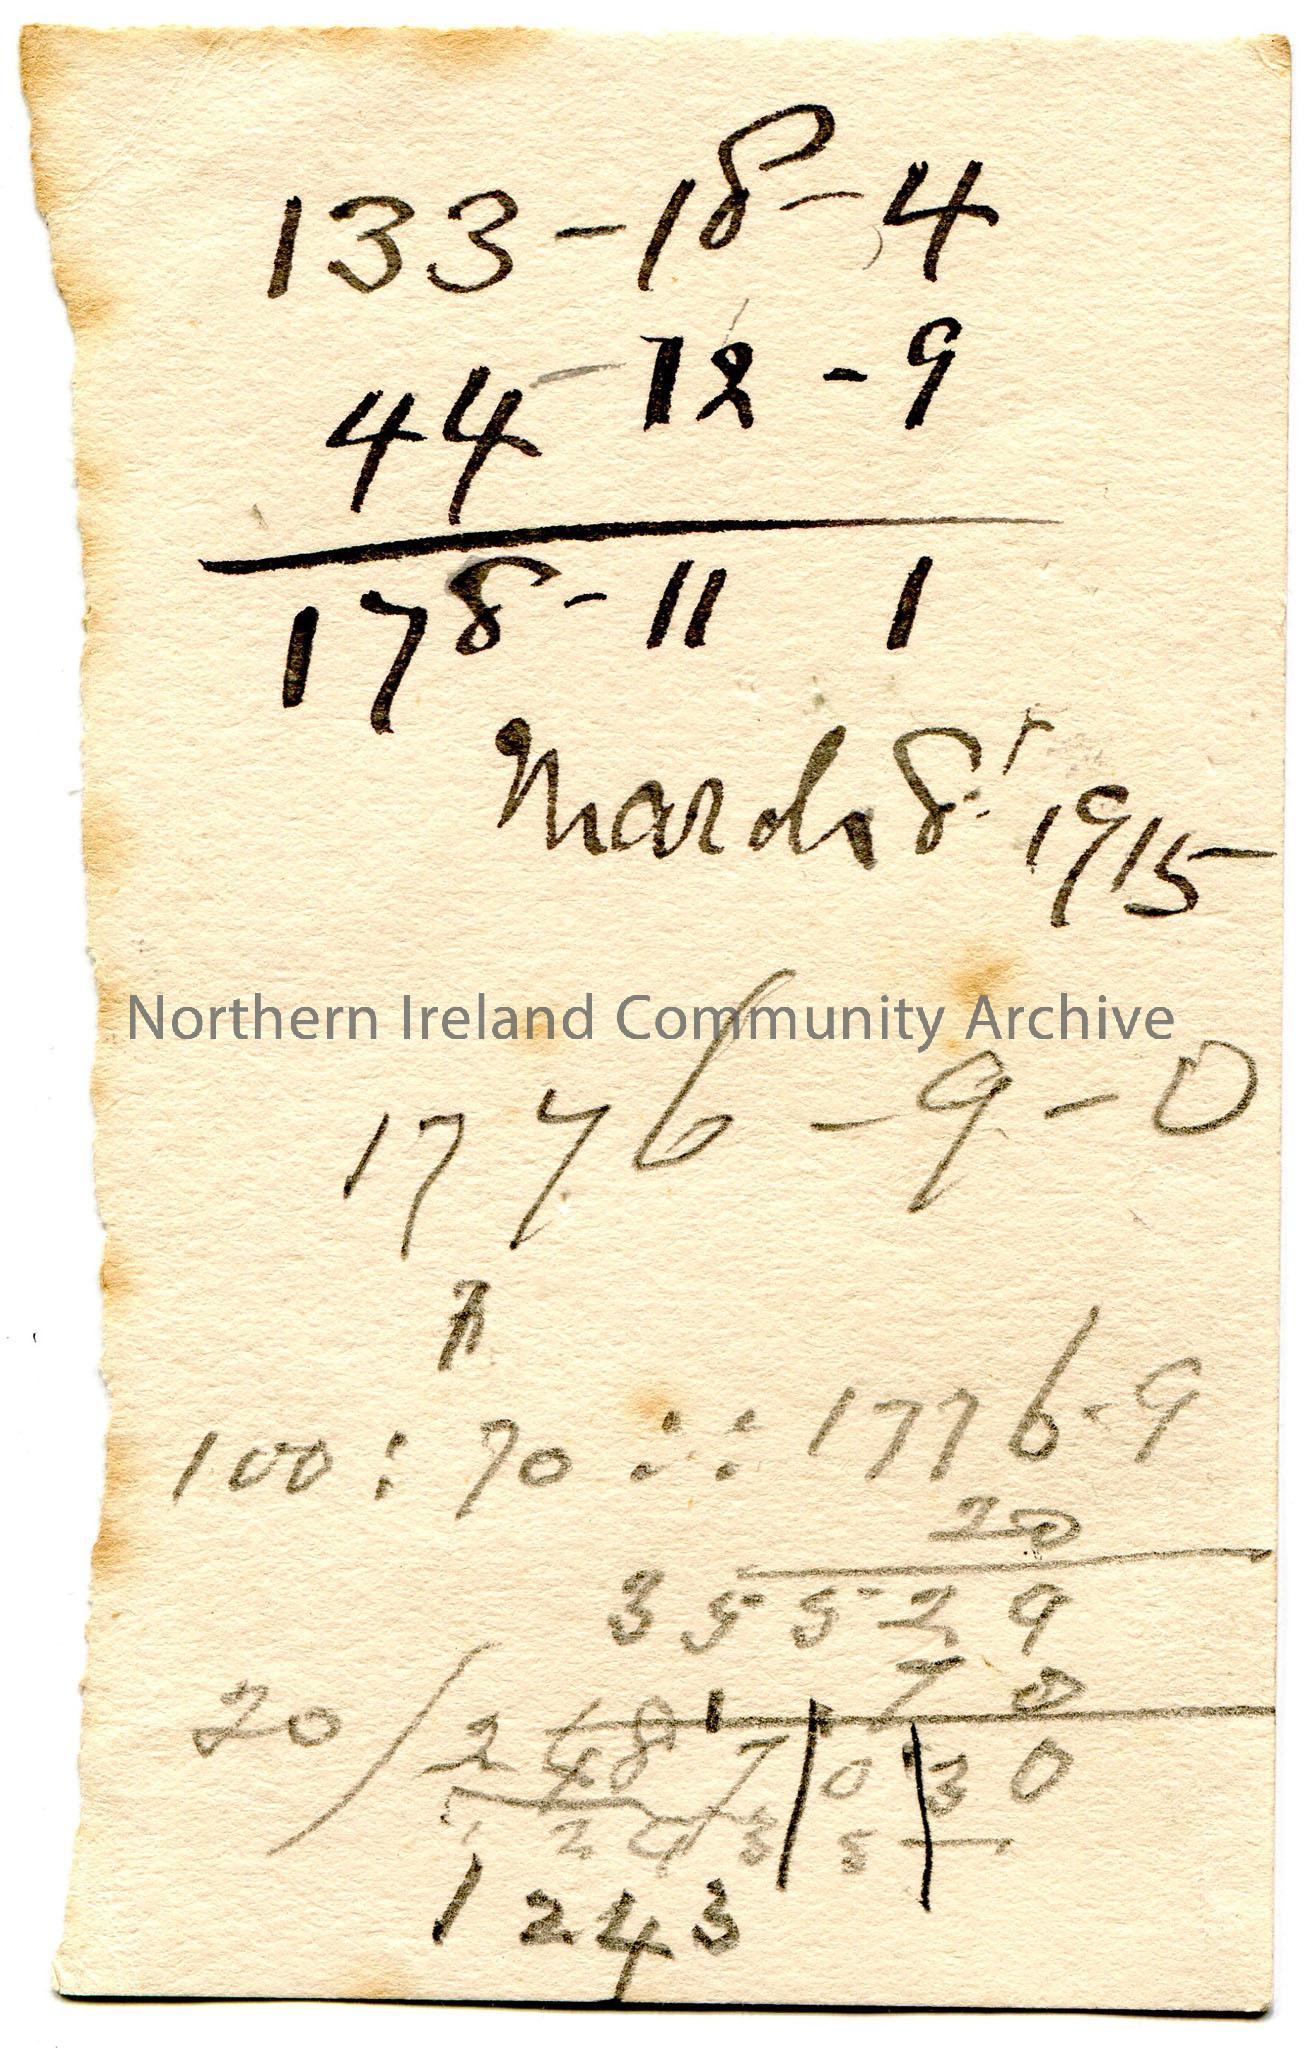 133 - 18 - 4
44 - 12 - 9
178 - 11 1
March 8th 1915
Northern Ireland Community Archive
1776 - 9 - 0
7
100 : 70 :: 1776 - 9
20
35529
70
20 / 2487|0|30
1243 5
1243